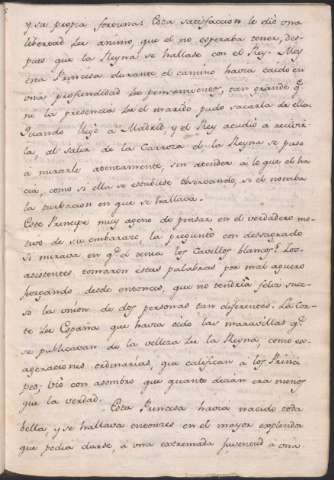 y su propia fortuna: Esta satisfaccion le dió una
libertad de animo, que él no esperaba tener, des-
pues que la Reyna se hallase con el Rey. Mas
esta Princesa durante el camino havia caido en
una profundidad de pensamientos, tan grande q.e
ni la presencia de el marido pudo sacarla de ella.
Quando llegó a Madrid y el Rey acudió a recivir
la al salir de la Carroza, la Reyna se puso
a mirarle atentamente, sin atender á lo que el ha
cia, como si ella se estubiese observando, si él notaba
la turbacion en que se hallava.
Este Principe muy ageno de pensar en el verdadero mo-
tivo de su embarazo, la pregunto con desagrado
si mirava en q.e él tenia los Cavellos blancos? Los
asistentes tomaron estas palabras por mal aguero
juzgando desde entonces, que no tendria feliz suce-
so la union de dos personas tan diferentes. La Cor-
te de España que havia oido las maravillas q.e
se publicavan de la belleza de la Reyna, como ex-
ageraciones ordinarias, que califican á los Princi
pes, vió con asombro que quanto decian era menos
que la verdad.
Esta Princesa havia nacido toda
bella, y se hallava entonces en el mayor explendor
que podia darse, á una extremada juventud á una